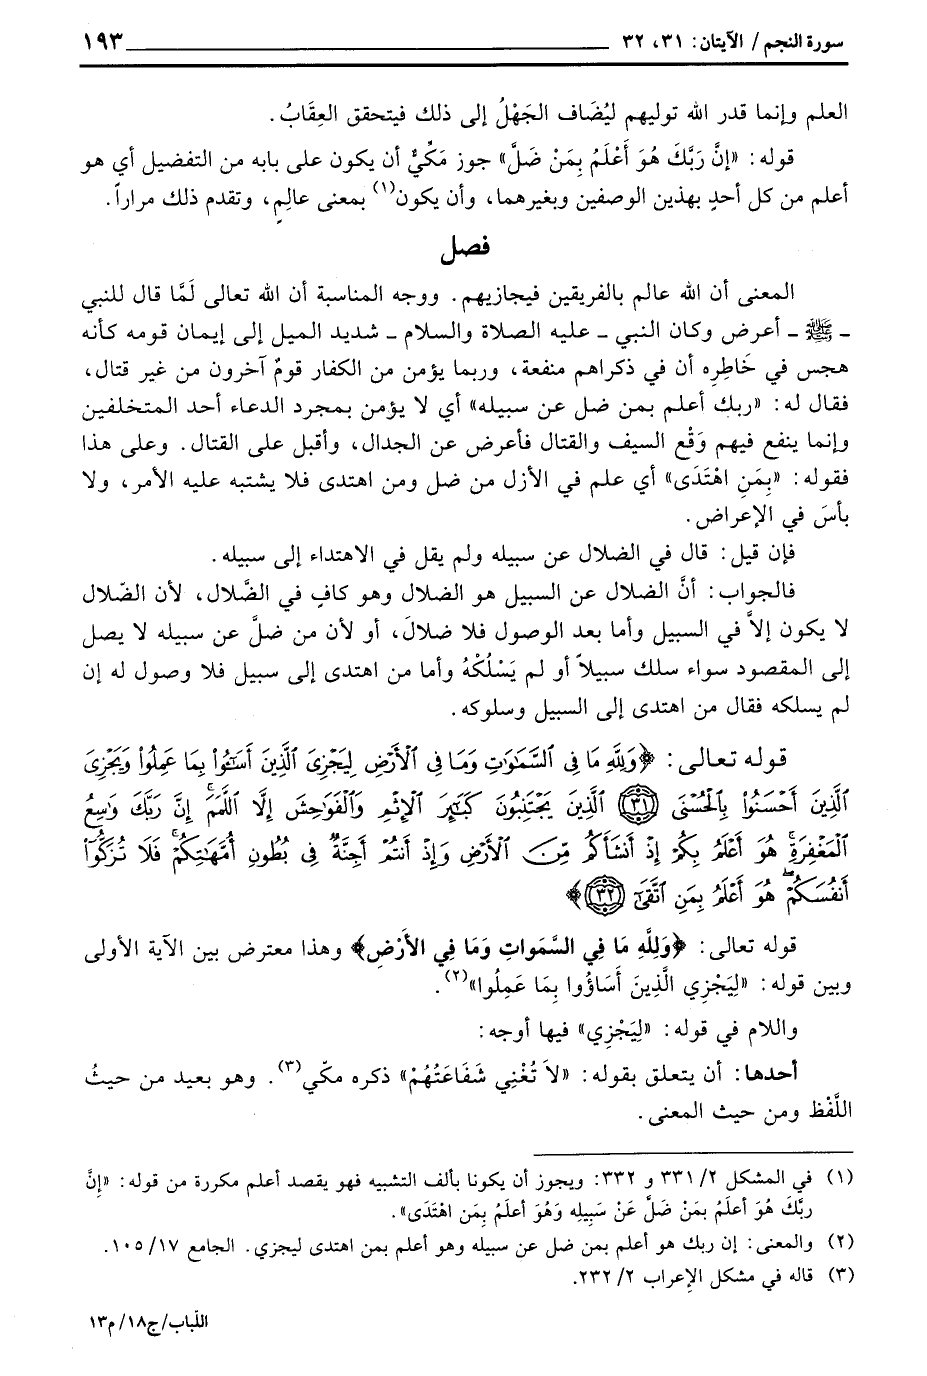 سورة النجم / الآيتان: ٣١، ٣٢ ١٩٣
العلم وإنما قدر الله توليهم ليُضَاف الجَهْلُ إلى ذلك فيتحقق العِقَابُ.
قوله: «إنَّ رَبَّكَ هُوَ أَعْلَمُ بِمَنْ ضَلَّ» جوز مَكّيٌّ أن يكون على بابه من التفضيل أي هو
أعلم من كل أحدٍ بهذين الوصفين وبغيرهما، وأن يكون(١) بمعنى عالِمٍ، وتقدم ذلك مراراً.
فصل
المعنى أن الله عالم بالفريقين فيجازيهم. ووجه المناسبة أن الله تعالى لَمَّا قال للنبي
- ﷺ - أعرض وكان النبي - عليه الصلاة والسلام - شديد الميل إلى إيمان قومه كأنه
هجس في خَاطِرِه أن في ذكراهم منفعة، وربما يؤمن من الكفار قومٌ آخرون من غير قتال،
فقال له: «ربك أعلم بمن ضل عن سبيله» أي لا يؤمن بمجرد الدعاء أحد المتخلفين
وإنما ينفع فيهم وَقْع السيف والقتال فأعرض عن الجدال، وأقبل على القتال. وعلى هذا
فقوله: «بِمَنِ اهْتَدَى» أي علم في الأزل من ضل ومن اهتدى فلا يشتبه عليه الأمر، ولا
بأسَ في الإعراض.
فإن قيل: قال في الضلال عن سبيله ولم يقل في الاهتداء إلى سبيله.
فالجواب: أنَّ الضلال عن السبيل هو الضلال وهو كافٍ في الضَّلال، لأن الضّلال
لا يكون إلاَّ في السبيل وأما بعد الوصول فلا ضلالَ، أو لأن من ضلَّ عن سبيله لا يصل
إلى المقصود سواء سلك سبيلاً أو لم يَسْلُكْهُ وأما من اهتدى إلى سبيل فلا وصول له إن
لم يسلكه فقال من اهتدى إلى السبيل وسلوكه.
قوله تعالى: ﴿وَلِلَّهِ مَا فِى ٱلسَّمَٰوَٰتِ وَمَا فِى ٱلْأَرْضِ لِيَجْزِىَ ٱلَّذِينَ أَسَٰٓـُٔوا۟ بِمَا عَمِلُوا۟ وَيَجْزِىَ
ٱلَّذِينَ أَحْسَنُوا۟ بِٱلْحُسْنَى (٣١) ٱلَّذِينَ يَجْتَنِبُونَ كَبَٰٓئِرَ ٱلْإِثْمِ وَٱلْفَوَٰحِشَ إِلَّا ٱللَّمَمَ ۚ إِنَّ رَبَّكَ وَٰسِعُ
ٱلْمَغْفِرَةِ ۚ هُوَ أَعْلَمُ بِكُمْ إِذْ أَنشَأَكُم مِّنَ ٱلْأَرْضِ وَإِذْ أَنتُمْ أَجِنَّةٌ فِى بُطُونِ أُمَّهَٰتِكُمْ ۖ فَلَا تُزَكُّوٓا۟
أَنفُسَكُمْ ۖ هُوَ أَعْلَمُ بِمَنِ ٱتَّقَىٰٓ (٣٢)﴾
قوله تعالى: ﴿وَلِلَّهِ مَا فِي السَّمَواتِ وَمَا فِي الأَرْضِ﴾ وهذا معترض بين الآية الأولى
وبين قوله: «لِيَجْزِي الَّذِينَ أَسَاؤُوا بِمَا عَمِلُوا»(٢).
واللام في قوله: «لِيَجْزِي» فيها أوجه:
أحدها: أن يتعلق بقوله: «لاَ تُغْنِي شَفَاعَتُهُمْ» ذكره مكّي(٣). وهو بعيد من حيثُ
اللَّفْظ ومن حيث المعنى.
(١) في المشكل ٢/ ٣٣١ و ٣٣٢: ويجوز أن يكونا بألف التشبيه فهو يقصد أعلم مكررة من قوله: «إنَّ
ربَّكَ هُوَ أعلَمُ بمَنْ ضَلَّ عَنْ سَبِيلِه وَهُوَ أعلَمُ بِمَن اهْتَدَى».
(٢) والمعنى: إن ربك هو أعلم بمن ضل عن سبيله وهو أعلم بمن اهتدى ليجزي. الجامع ١٧/ ١٠٥.
(٣) قاله في مشكل الإعراب ٢/ ٢٣٢.
اللّباب/ج١٨/م١٣